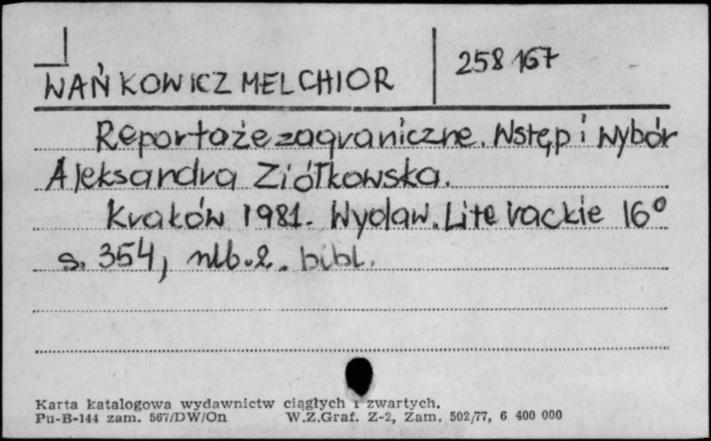 WAŃKOWICZ MELCHIOR
258 167
Reportaże zagraniczne. Wstęp i wybór
Aleksandra Ziółkowska.
Kraków 1981. Wydaw. Literackie 16°
s. 354, nlb. 2. bibl.
Karta katalogowa wydawnictw ciągłych i zwartych.
Pu-B-144 zam. 567/DW/On W.Z.Graf. Z-2, Zam. 502/77, 6 400 000